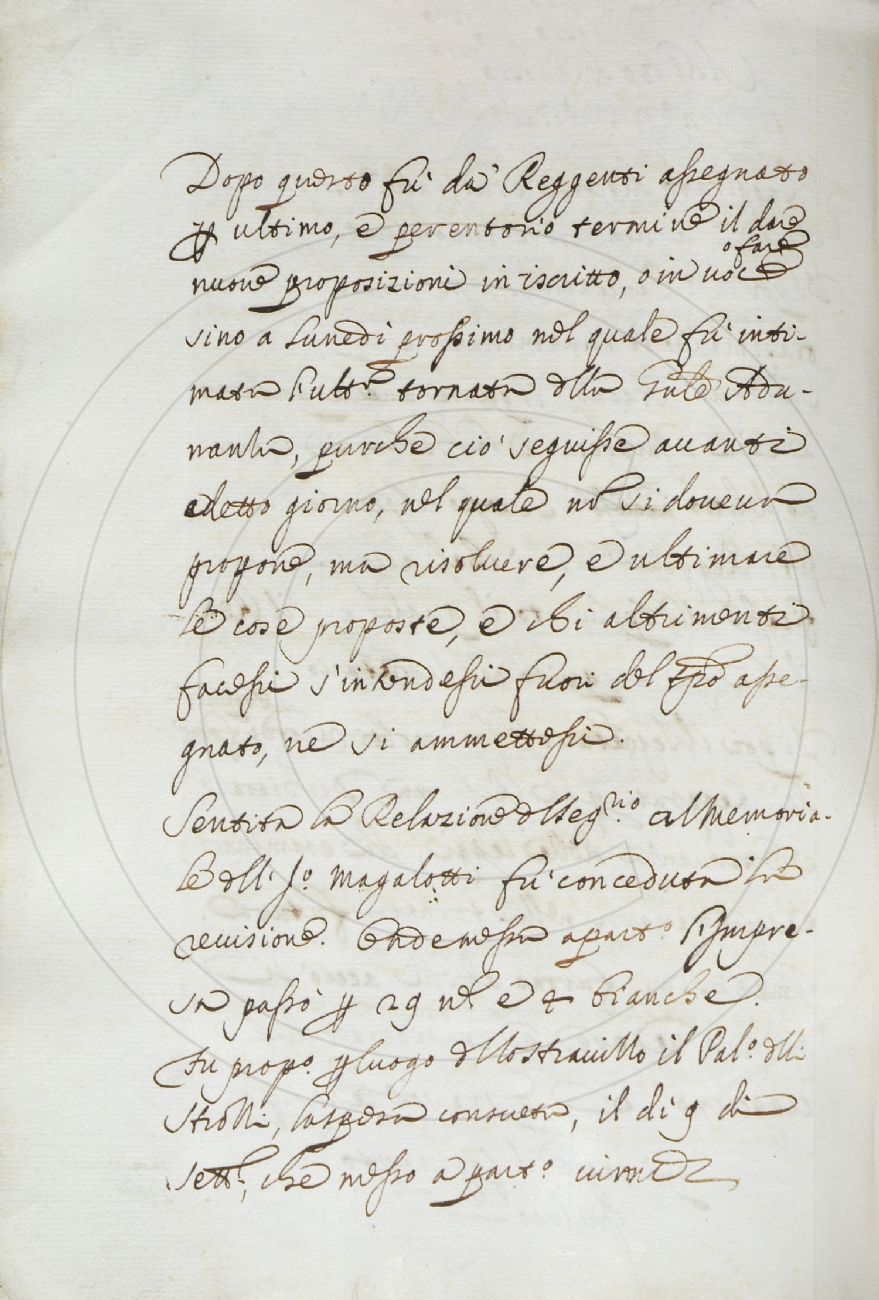 Dopo questo fù dà Reggenti assegnato
ꝑ ultimo, e perentorio termine il dare
o fare
nuove proposizioni in iscritto, o in voce
sino a Lunedì prossimo nel quale fù inti-
mata l'ult.ª tornata dlla Gñle Adu-
nanza, purche ciò seguisse avanti
a detto giorno, nel quale nõ si doveva
proporre, ma risolvere, e ultimare
le cose proposte, e chi altrimenti
facessi s'intendessi fuori del tp̃o asse-
gnato, ne si ammettessi.
Sentita la Relazione dl Seg.rio al Memoria-
le dll' Jll.º Magalotti fù conceduta la
revisione. Onde messa a part.º l'Impre-
sa passò ꝑ 29 n.e e 4 bianche.
Fu prop.º ꝑ luogo dllo Stravizzo il Pal.º dlli
Strozzi, la spesa consueta, il di 9 di
Sett.e, che messo a part.º vinse